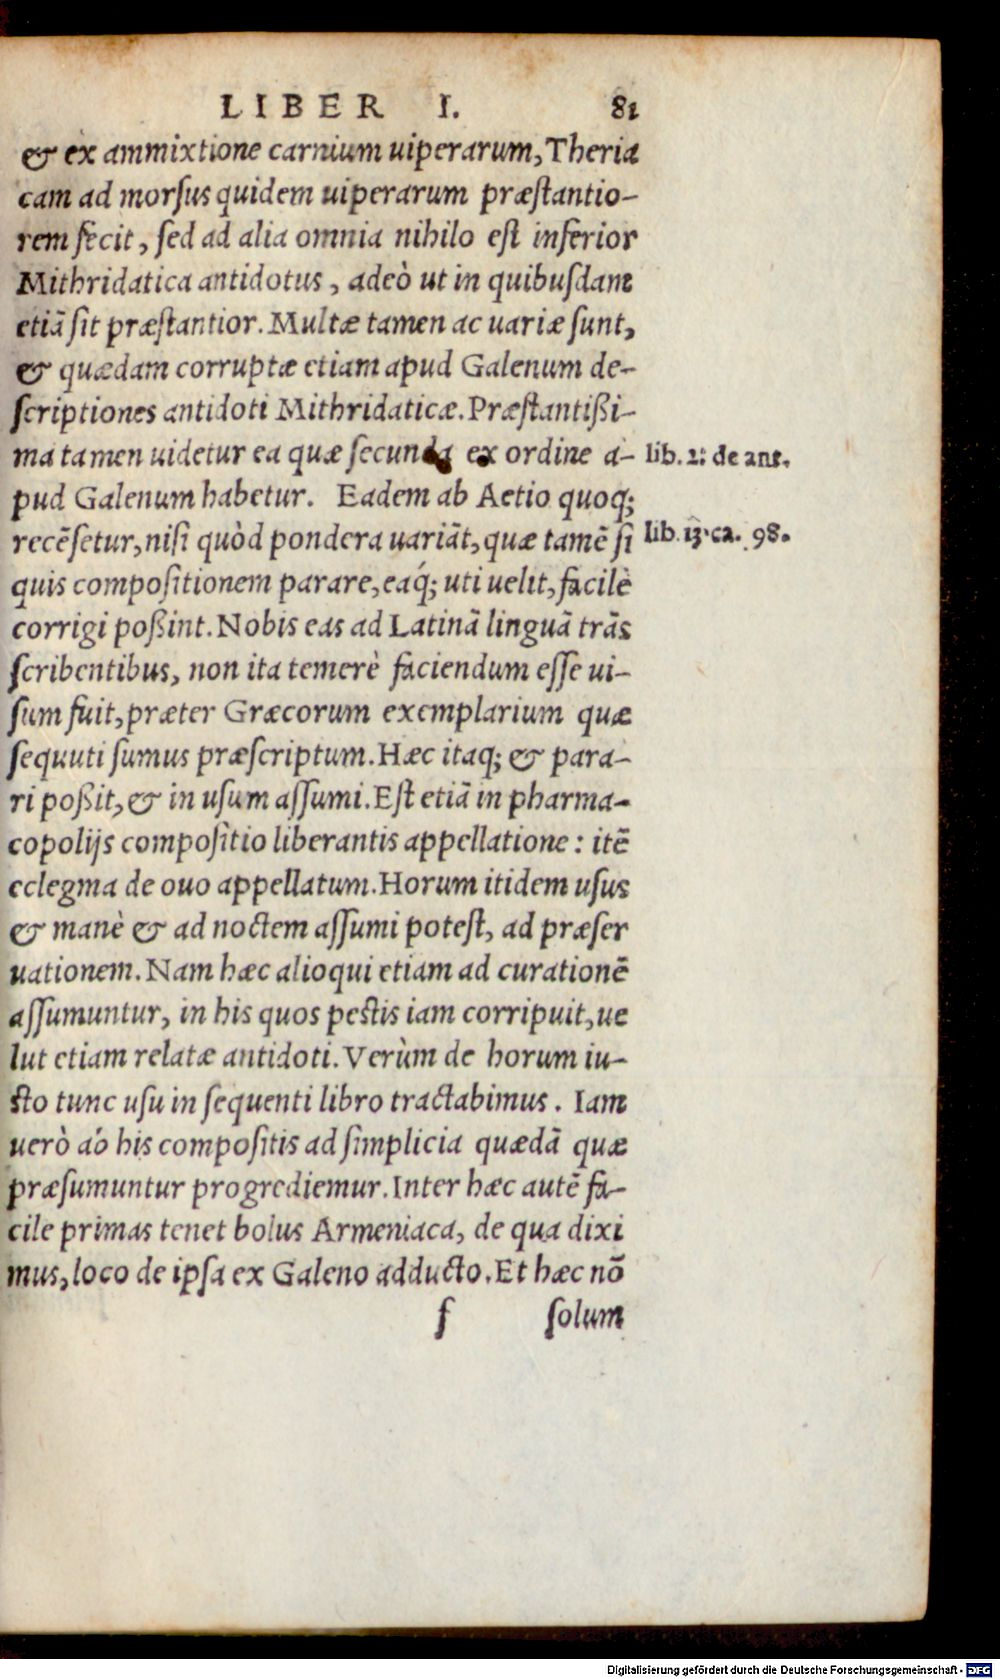 LIBER I. 81
& ex ammixtione carnium uiperarum, Theria
cam ad morſus quidem uiperarum præſtantio-
rem fecit, ſed ad alia omnia nihilo eſt inferior
Mithridatica antidotus, adeò ut in quibuſdam
etiã ſit præſtantior. Multæ tamen ac uariæ ſunt,
& quædam corruptæ etiam apud Galenum de-
ſcriptiones antidoti Mithridaticæ. Præſtantißi-
ma tamen uidetur ea quæ ſecunda ex ordine a- lib. 2. de ant.
pud Galenum habetur. Eadem ab Aetio quoq;
recẽſetur, niſi quòd pondera uariãt, quæ tamẽ ſi lib. 13. ca. 98.
quis compoſitionem parare, eaq́; uti uelit, facilè
corrigi poßint. Nobis eas ad Latinã linguã trãs
ſcribentibus, non ita temerè faciendum eſſe ui-
ſum fuit, præter Græcorum exemplarium quæ
ſequuti ſumus præſcriptum. Hæc itaq; & para-
ri poßit, & in uſum aſſumi. Eſt etiã in pharma-
copolijs compoſitio liberantis appellatione: itẽ
eclegma de ouo appellatum. Horum itidem uſus
& manè & ad noctem aſſumi poteſt, ad præſer
uationem. Nam hæc alioqui etiam ad curationẽ
aſſumuntur, in his quos peſtis iam corripuit, ue
lut etiam relatæ antidoti. Verùm de horum iu-
ſto tunc uſu in ſequenti libro tractabimus. Iam
uerò ab his compoſitis ad ſimplicia quædã quæ
præſumuntur progrediemur. Inter hæc autẽ fa-
cile primas tenet bolus Armeniaca, de qua dixi
mus, loco de ipſa ex Galeno adducto. Et hæc nõ
f ſolum
Digitalisierung gefördert durch die Deutsche Forschungsgemeinschaft - DFG